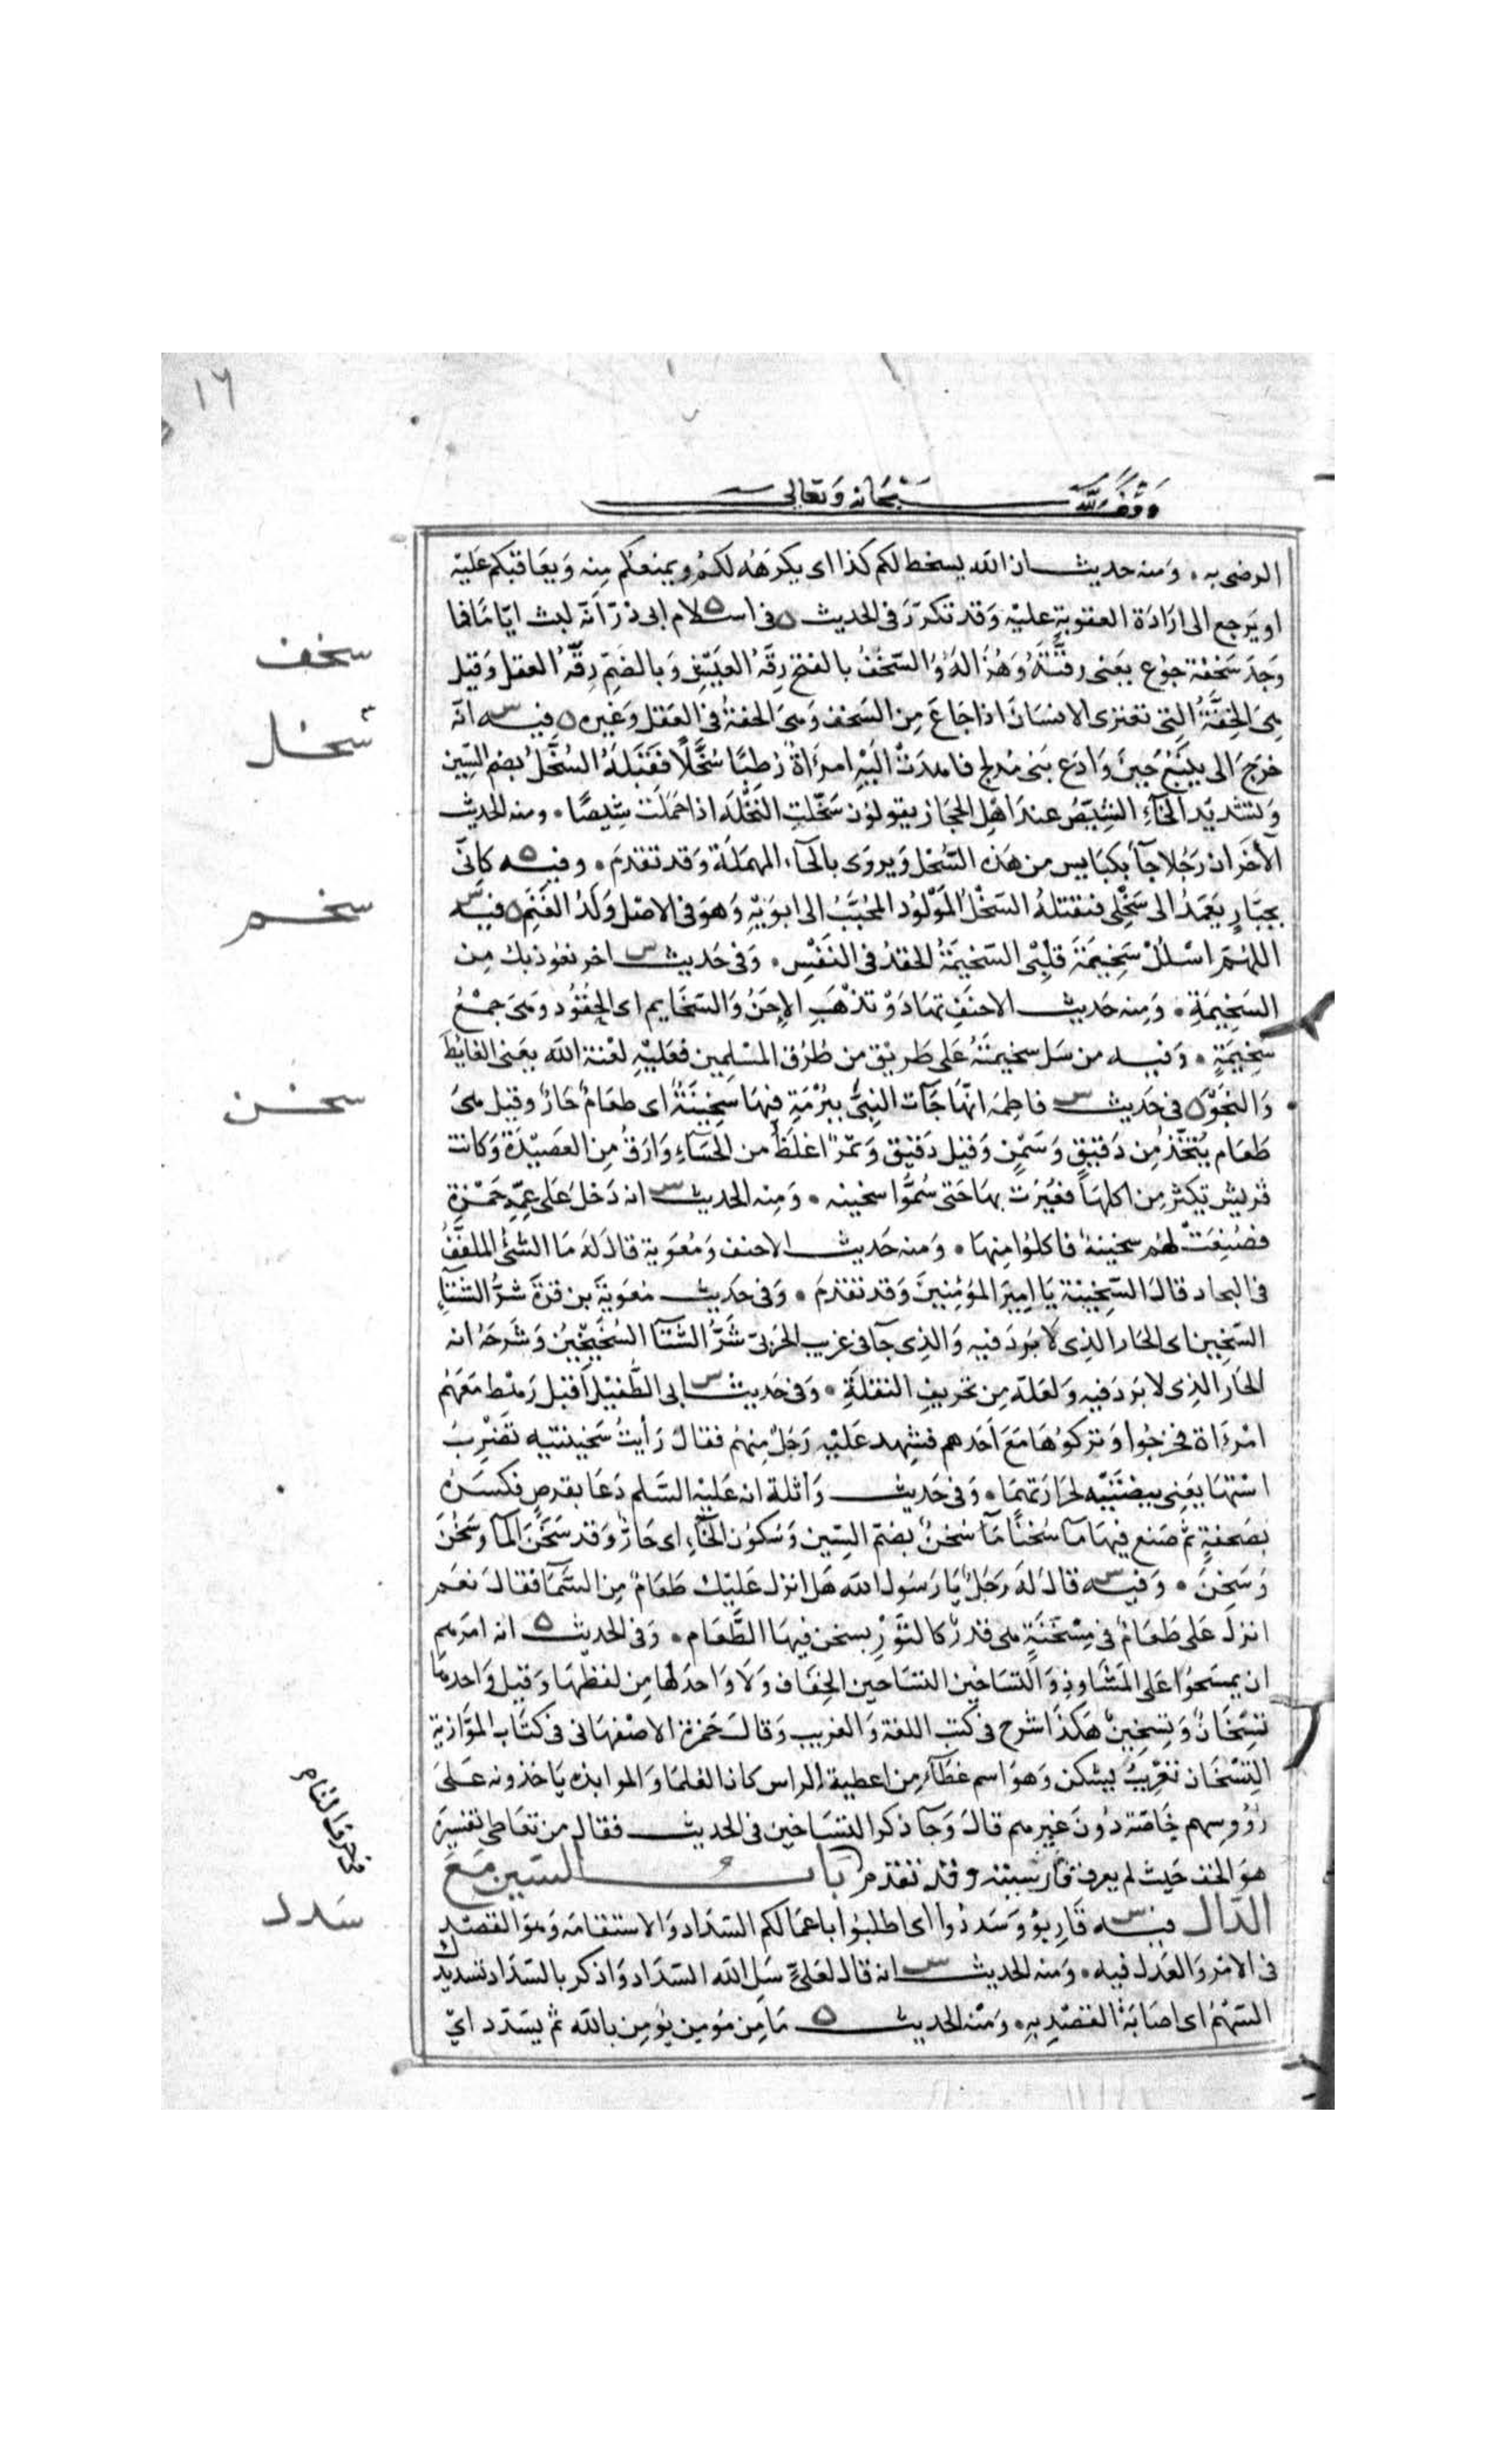 ١٦
وقف لله سبحانه وتعالى
الرضى به ٠ وَمنه حديث ان الله يسخط لكم كذا اى يكرَهُه لكُم ويمنعكُم مِنه وَيعَاقبكم عَليْه
او يَرجع الى ارَادَة العقوبةِ عليْه وَقد تكرّرَ فى الحديث ٥ فى اسلام ابى ذرّ اَنّه لبث ايّامًا فما
وَجدَ سَخفة جوُع يعَنى رقتَّهُ وَهُزَالهُ وَالسَّخفُ بالفتح رِقّهُ العيَشِ وَبالضَمِّ رِقّهُ العقل وَقيل
هِىَ الخِفَّةُ التِى تعترى الانسَانَ اذا جَاعَ مِن السَخف وَهىَ الخفةُ فى العَقل وَغيره ٥ فيه س انّه
خرَجَ الى يَنبُع حِينَ وَادَع بَنى مُدلج فاهدَتْ اليْهِ امرَاَة رُطبًا سُخَّلاً فقَبَلهُ السُخَّلُ بضم السِّين
وَتشديد الخاءِ الشِيصُ عندَ اهْل الحجَاز يقولوُن سَخّلتِ النخَّلَه اذا حَمَلت شِيصًا ٠ ومنه الحديث
الآخَر ان رَجُلا جآ بكبَايس من هَذه السُّخل وَيروَى بالحآء المهمَلة وَقد تقدمَ ٠ وفيه ٥ كانّى
بجبَّارٍ يَعمَدُ الى سَخْلِى فيَقتلهُ السَخْلُ المَوْلوُد المحُبَّبُ الى ابوَيْهِ وَهوَ فى الاصْل وَلدُ الغَنَم ٥ فيه س
اللهُمّ اسْلُلْ سَخِيمَةَ قلْبِى السَّخيمَةُ الحقدُ فى النفَسْ ٠ وَفى حَديث س اخر نعوُذ بك مِن
السَخِيمَةِ ٠ وَمِنه حَديث الاحنَفِ تهَادَوْ تذْهَبِ الاِحَنُ وَالسَخَايم اى الحِقوُد وهىَ جمْعُ
سَخِيمَةٍ ٠ وَفيه من سَل سخيمَتَهُ عَلى طَريْق من طُرُق المسْلِمين فعَليْهِ لعْنة الله يعَنى الغايُطَ
وَالنجَوْ ٥ فى حَديث س فاطِمه انّهَا جَآت النِبىَّ ببُرْمَةٍ فيهَا سَخِينَةُ اى طعَامٌ حَارّ وقيل هىَ
طَعَام يُتخَّذ مِن دَقيقٍ وَسَمْنٍ وَقيل دَقيق وَتَمْر اغلظُ من الحَسَاءِ وَارَقُ مِن العصَيْدَة وَكانت
قرَيش تكثر مِن اكلهَا فعُيّرَت بهَا حَتى سُمُّوا سخينه ٠ وَمِنه الحديث س انه دَخل عَلى عِمّهِ حَمْزة
فصُنِعَتْ لهُم سخينة فاكلوُا مِنهَا ٠ وَمنه حَديث الاحنف وَمُعَوَية قال لهَ مَا الشئُ الملفَّفُ
فى البجاد قال السَّخِينة يَا امِيرَ المؤَمِنينَ وَقد تقدمَ ٠ وَفى حَديث مُعوَيةَ بن قرَةَ شرُّ الشتآءِ
السَّخِين اى الحَار الذِى لا بَردَ فيه وَالذِى جآ فى غريب الحَربىّ شَرُّ الشتآ السُخَيْخِيْنُ وَشرحَهُ انه
الحَار الذِى لا برَدَ فيه وَلعَلّه مِن تحريفِ النقلةِ ٠ وَفى حَديث س ابى الطُّفيْل اَقبْل رَهْط مَعَهُم
امْرَاَة فخرجُوا وَترَكوُهَا مَعَ اَحَدهم فشهد عَليْه رَجُل مِنهُم فقال رَأيتُ سَخيْنتيه تضَرِبُ
اسْتهَا يعَنى بيضَتيْه لحرَارَتهمَا ٠ وَفى حَديث وَاثلة انه عَليه السَلم دَعَا بقرص فكسَرَهُ
بصَحفةٍ ثم صَنع فيهَا مآ سُخنًا مَآ سُخنٌ بضمّ السِّين وَسُكوُن الخآءِ اى حَارّ وَقد سَخَنَ المآ وسَخُن
وَسَخِنَ ٠ وَفيه س قال لهَ رَجَل يَا رَسوُل الله هَل انزل عَليْك طَعَام مِن السَّمآ فقال نعَم
انزل عَلى طَعَامٌ فى مِسْخَنَةٍ هى قدر كالتَّوْر يسخن فيهَا الطَّعَام ٠ وَفى الحَديث ٥ انه امَرهم
ان يمسَحوُا عَلى المَشَاوِذِ وَالتسَاخِين التسَاخين الخِفاف وَلا وَاحدَ لهَا مِن لفظهَا وَقيل وَاحدهَا
تسَخَانٌ وَتسخِينٌ هَكذَا شرح فى كتب اللغة وَالغريب وَقال حَمزة الاصْفهَانى فى كتَاب الموَازنة
التِسْخَان تعْرِيبُ تشكن وَهوَ اسم غطآءٍ من اغطية الراس كان العُلمآ وَالموابذه يَاخذونه عَلىَ
رؤوسهم خَاصّة دوُنَ غيرهم قال وَجآ ذكر التسَاخين فى الحَديث فقال من تعَاطى تفسِيرَهُ
هوَ الخف حَيث لم يعرف فارسيّته وقد تقدم باب السّين مَعَ
الدّال فيه س قارِبوُ وَسَددُوا اى اطلبوُا باعمَالكم السَّدَاد وَالاستقامَه وَهوَ القصْد
فى الامْر وَالعَدل فيه ٠ وَمنه الحديث س انه قال لعَلىّ سَل الله السَّدَاد وَاذكر بالسَّدَاد تسديدَك
السَّهْمَ اى اصَابَة القصَدْ بِه ٠ وَمنه الحديث ٥ مَا مِن مُومِن يُؤمن بالله ثم يسَدّد اىْ
سخف
سخل
سخم
سخن
فى حرف التاء
سَدد